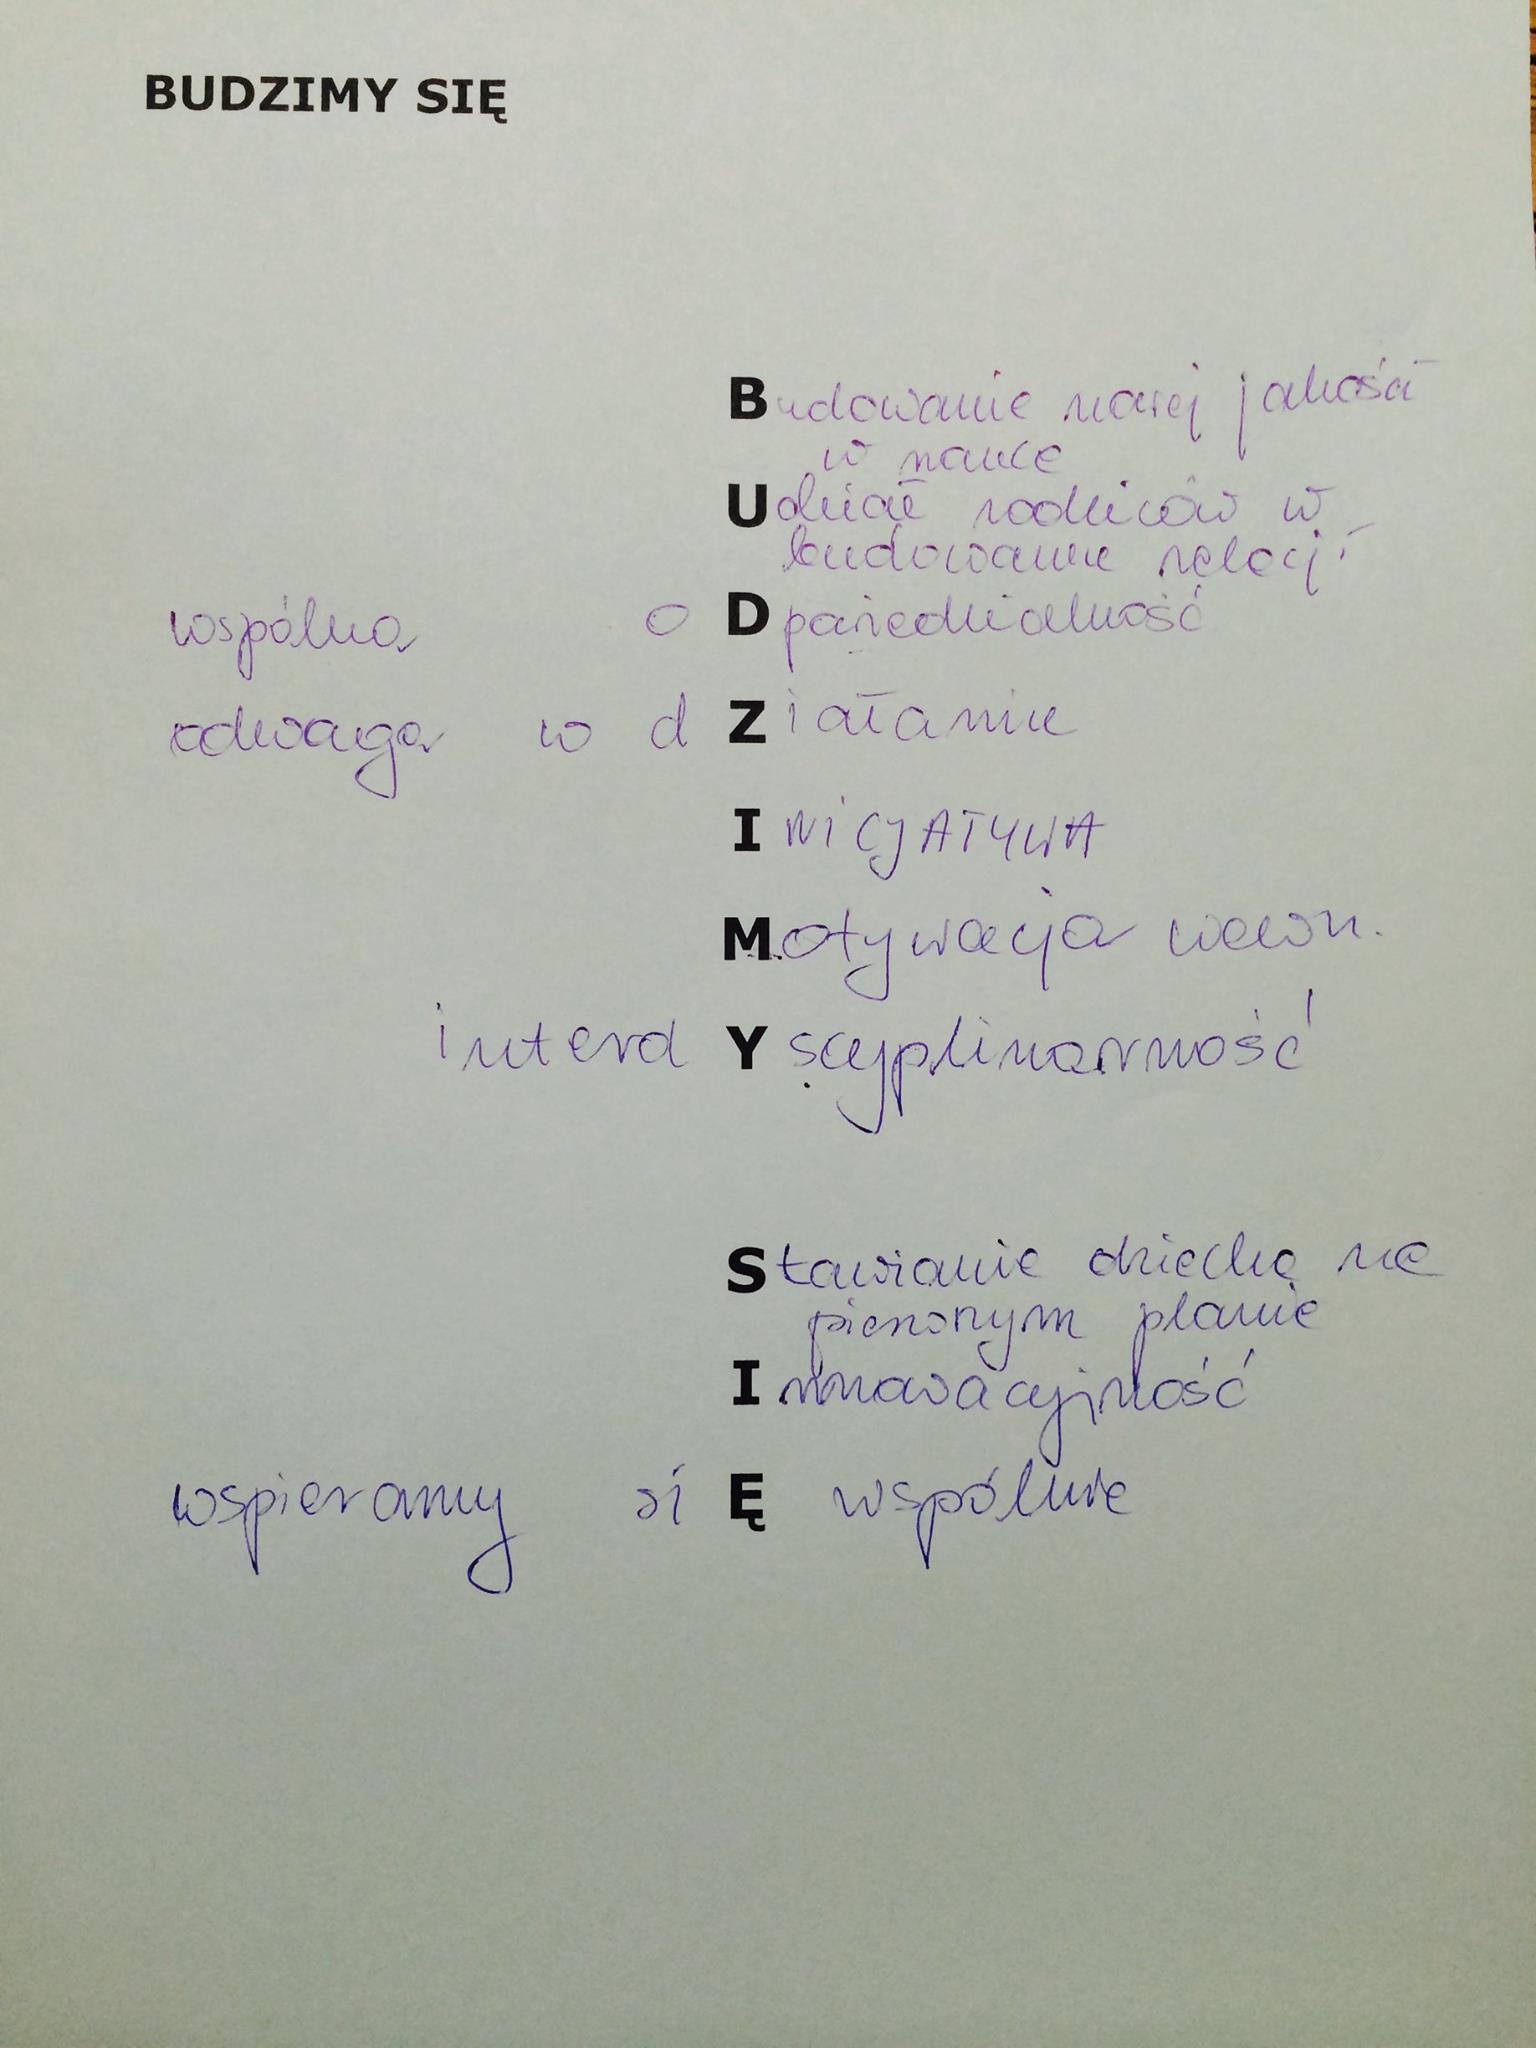 BUDZIMY SIĘ
Budowanie nowej jakości
w nauce
Udział rodziców w
budowanie relacji
wspólna oDpowiedzialność
odwaga w dZiałaniu
INICJATYWA
Motywacja wewn.
interdYscyplinarność
Stawianie dziecka na
pierwszym planie
Innowacyjność
wspieramy siĘ wspólnie